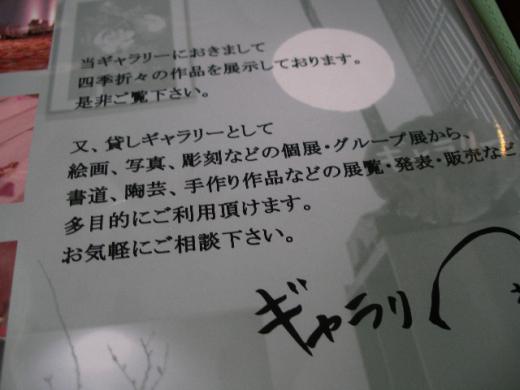 当ギャラリーにおきまして
四季折々の作品を展示しております。
是非ご覧下さい。
又、貸しギャラリーとして
絵画、写真、彫刻などの個展・グループ展から、
書道、陶芸、手作り作品などの展覧・発表・販売など
多目的にご利用頂けます。
お気軽にご相談下さい。
ギャラリ